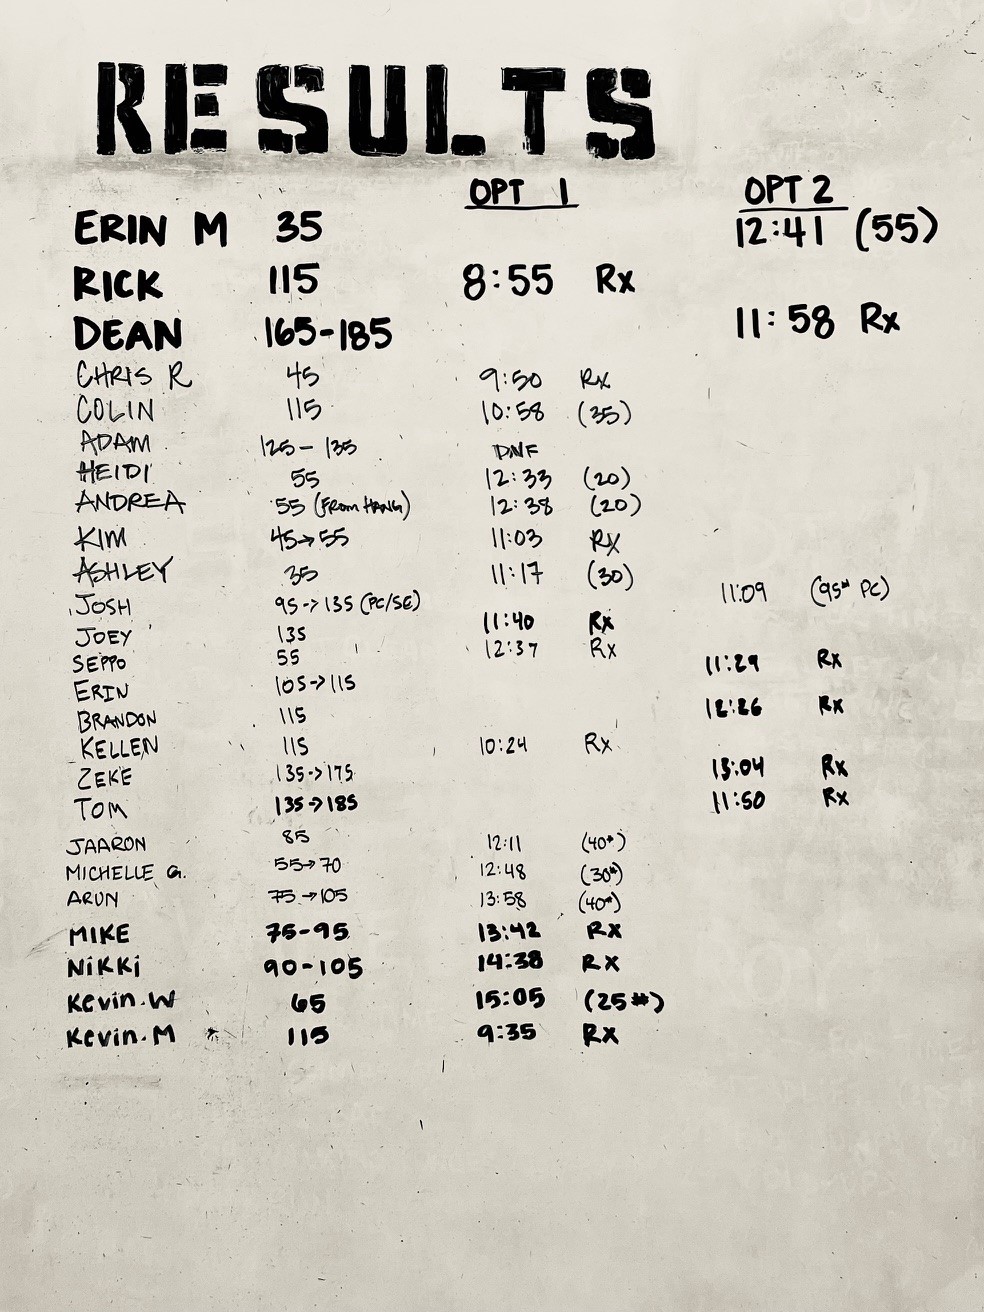 RESULTS
OPT 1 OPT 2
ERIN M 35 12:41 (55)
RICK 115 8:55 Rx
DEAN 165-185 11:58 Rx
CHRIS R 45 9:50 Rx
COLIN 115 10:58 (35)
ADAM 125-135 DNF
HEIDI 55 12:33 (20)
ANDREA 55 (FROM HANG) 12:38 (20)
KIM 45→55 11:03 RX
ASHLEY 35 11:17 (30)
JOSH 95->135 (PC/SE) 11:09 (95# PC)
JOEY 135 11:40 Rx
SEPPO 55 12:37 Rx
ERIN 105->115 11:29 Rx
BRANDON 115 12:26 Rx
KELLEN 115 10:24 Rx
ZEKE 135->175 13:04 Rx
TOM 135->185 11:50 Rx
JAARON 85 12:11 (40#)
MICHELLE G. 55->70 12:48 (30#)
ARUN 75->105 13:58 (40#)
MIKE 75-95 13:42 RX
NiKKi 90-105 14:38 RX
Kevin.W 65 15:05 (25#)
Kevin.M 115 9:35 RX